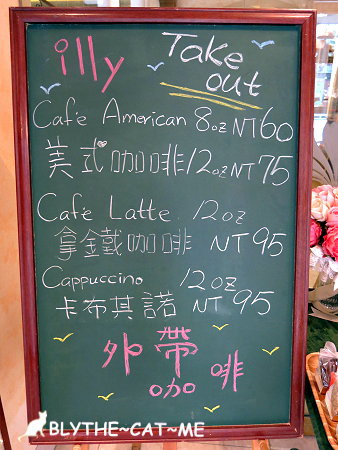 illy Take out
Café American 8oz NT60
美式咖啡 12oz NT75
Café Latte 12oz
拿金鐵咖啡 NT95
Cappuccino 12oz
卡布其諾 NT95
外帶
咖啡
BLYTHE~CAT~ME